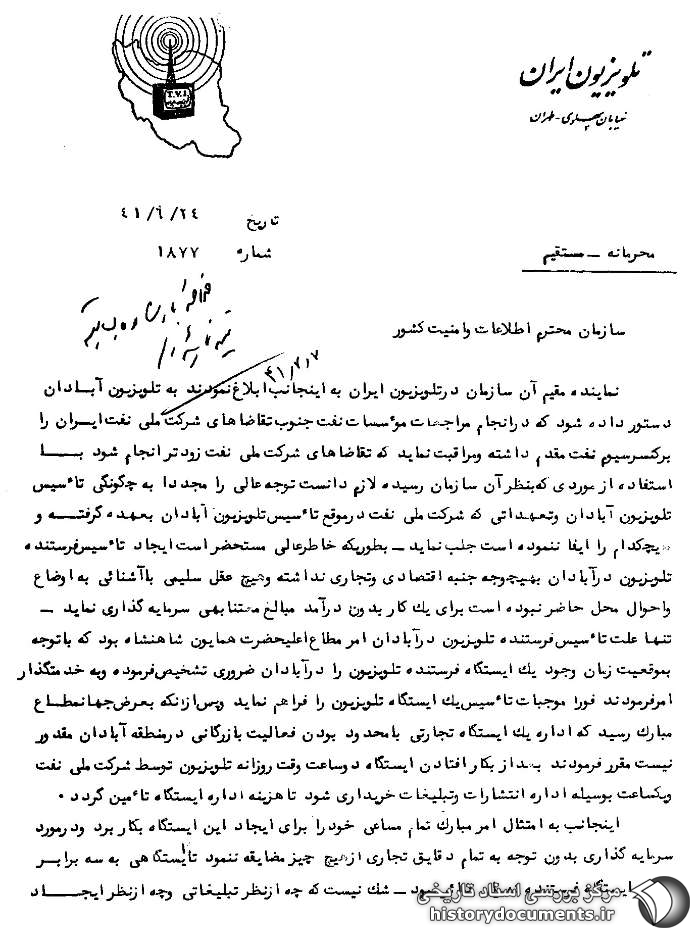 T.V.I.
تلویزیون ایران
خیابان پهلوی - طهران
تاریخ ٤١/٦/٢٤
شماره ١٨٧٧
محرمانه ـ مستقیم
سازمان محترم اطلاعات وامنیت کشور
٤١/٧/٧
نماینده مقیم آن سازمان درتلویزیون ایران به اینجانب ابلاغ نمودند به تلویزیون آبادان
دستور داده شود که درانجام مراجعات مؤسسات نفت جنوب تقاضا های شرکت ملی نفت ایران را
برکنسرسیوم نفت مقدم داشته ومراقبت نماید که تقاضا های شرکت ملی نفت زودتر انجام شود بـــا
استفاده از موردی که بنظر آن سازمان رسیده لازم دانست توجه عالی را مجددا به چگونگی تاٴسیس
تلویزیون آبادان وتعهداتی که شرکت ملی نفت درموقع تاٴسیس تلویزیون آبادان بعهده گرفتــه و
هیچکدام را ایفا ننموده است جلب نماید ـ بطوریکه خاطرعالی مستحضر است ایجاد تاٴسیس فرستنده
تلویزیون درآبادان بهیچوجه جنبه اقتصادی وتجاری نداشته وهیچ عقل سلیمی باآشنائی به اوضاع
واحوال محل حاضر نبوده است برای یك کار بدون درآمد مبالغ معتنابهی سرمایه گذاری نماید ـ
تنها علت تاٴسیس فرستنده تلویزیون درآبادان امر مطاع اعلیحضرت همایون شاهنشاه بود که باتوجه
بموقعیت زمان وجود یك ایستگاه فرستنده تلویزیون را درآبادان ضروری تشخیص فرموده وبه خدمتگذار
امر فرمودند فورا موجبات تاٴسیس یك ایستگاه تلویزیون را فراهم نماید وپس ازانکه بعرض جهانمطاع
مبارك رسید که اداره یك ایستگاه تجارتی بامحدود بودن فعالیت بازرگانی درمنطقه آبادان مقدور
نیست مقرر فرمودند بعداز بکار افتادن ایستگاه دوساعت وقت روزانه تلویزیون توسط شرکت ملی نفت
ویکساعت بوسیله اداره انتشارات وتبلیغات خریداری شود تا هزینه اداره ایستگاه تاٴمین گردد ٠
اینجانب به امتثال امر مبارك تمام مساعی خود را برای ایجاد این ایستگاه بکار برد ودرمورد
سرمایه گذاری بدون توجه به تمام دقایق تجاری ازهیچ چیز مضایقه ننمود تاایستگاهی به سه برابر
ایستگاه فرستنده ـ شك نیست که چه ازنظر تبلیغاتی وچه ازنظر ایجـــاد
مرکز بررسی اسناد تاریخی
historydocuments.ir